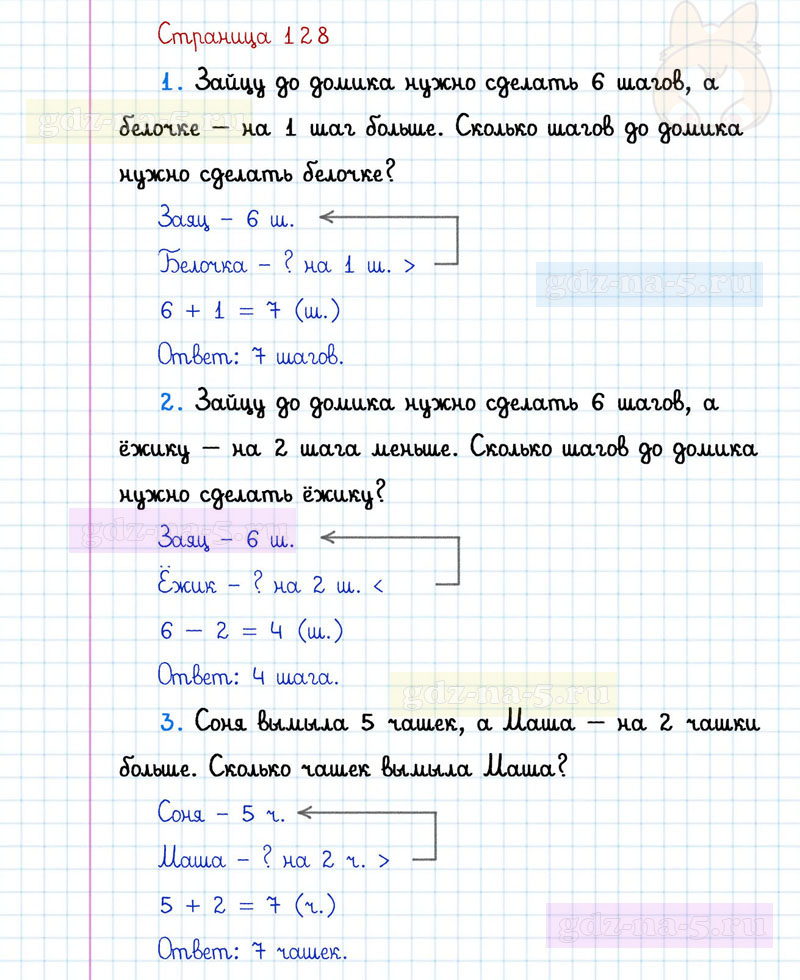 Страница 128
1. Зайцу до домика нужно сделать 6 шагов, а
gdz-na-5.ru
белочке – на 1 шаг больше. Сколько шагов до домика
нужно сделать белочке?
Заяц – 6 ш.
Белочка – ? на 1 ш. >
gdz-na-5.ru
6 + 1 = 7 (ш.)
Ответ: 7 шагов.
2. Зайцу до домика нужно сделать 6 шагов, а
ёжику – на 2 шага меньше. Сколько шагов до домика
нужно сделать ёжику?
gdz-na-5.ru
Заяц – 6 ш.
Ёжик – ? на 2 ш. <
6 – 2 = 4 (ш.)
Ответ: 4 шага.
gdz-na-5.ru
3. Соня вымыла 5 чашек, а Маша – на 2 чашки
больше. Сколько чашек вымыла Маша?
Соня – 5 ч.
Маша – ? на 2 ч. >
5 + 2 = 7 (ч.)
gdz-na-5.ru
Ответ: 7 чашек.